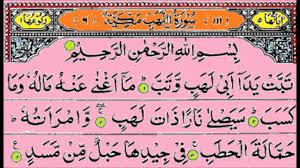 (١١١) سُوْرَةُ اللَّهَبِ مَكِّيَّةٌ (٦)
بِسْمِ اللهِ الرَّحْمٰنِ الرَّحِيْمِ
تَبَّتْ يَدَآ اَبِيْ لَهَبٍ وَّتَبَّ ؕ مَآ اَغْنٰى عَنْهُ مَالُهٗ وَمَا
كَسَبَ ؕ سَيَصْلٰى نَارًا ذَاتَ لَهَبٍ ۚ وَّامْرَاَتُهٗ ؕ
حَمَّالَةَ الْحَطَبِ ۚ فِيْ جِيْدِهَا حَبْلٌ مِّنْ مَّسَدٍ